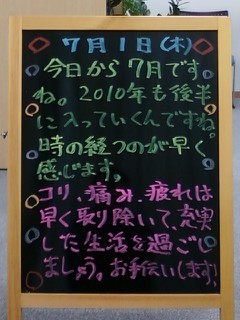 7月1日(木)
今日から7月です
ね。2010年も後半
に入っていくんですね。
時の経つのが早く
感じます。
コリ、痛み、疲れは
早く取り除いて、充実
した生活を過ごし
ましょう。お手伝いします。